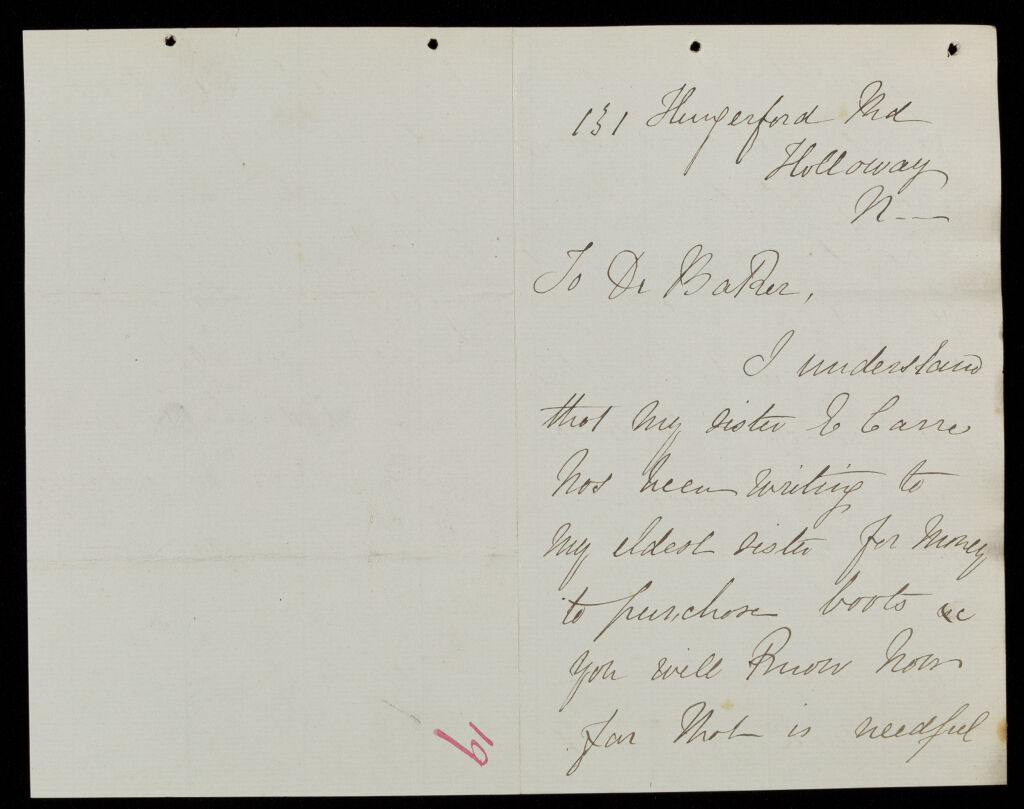 131 Hungerford Rd
Holloway
N--
To Dr Baker,
I understand
that my sister E Carre
has been writing to
my eldest sister for money
to purchase boots &c
you will know how
far that is needful
19